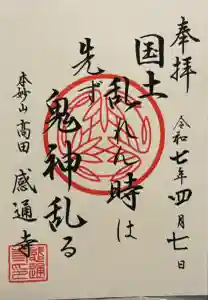 奉拝
令和七年四月七日
国土
乱れた時は
先ず
鬼神乱る
本妙山 高田 感通寺